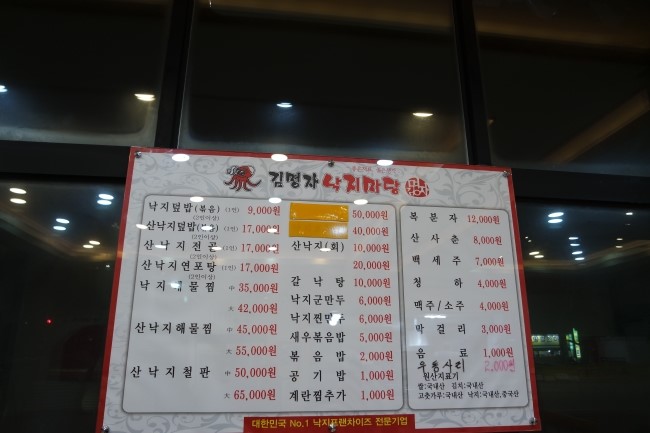 김명자 낙지마당
낙지덮밥(볶음) (1인) 9,000원
(2인이상)
산낙지덮밥 17,000원
(2인이상)
산낙지전골 17,000원
(2인이상)
산낙지연포탕 (1인) 17,000원
(2인이상)
낙지해물찜 中 35,000원
大 42,000원
산낙지해물찜 中 45,000원
大 55,000원
산낙지철판 中 50,000원
大 65,000원
50,000원
40,000원
산낙지(회) 10,000원
20,000원
갈낙탕 10,000원
낙지군만두 6,000원
낙지찐만두 6,000원
새우볶음밥 5,000원
볶음밥 2,000원
공기밥 1,000원
계란찜추가 1,000원
복분자 12,000원
산사춘 8,000원
백세주 7,000원
청하 4,000원
맥주/소주 4,000원
막걸리 3,000원
음료 1,000원
우동사리 2,000원
원산지표기
쌀:국내산 김치:국내산
고춧가루:국내산 낙지:국내산,중국산
대한민국 No.1 낙지프랜차이즈 전문기업